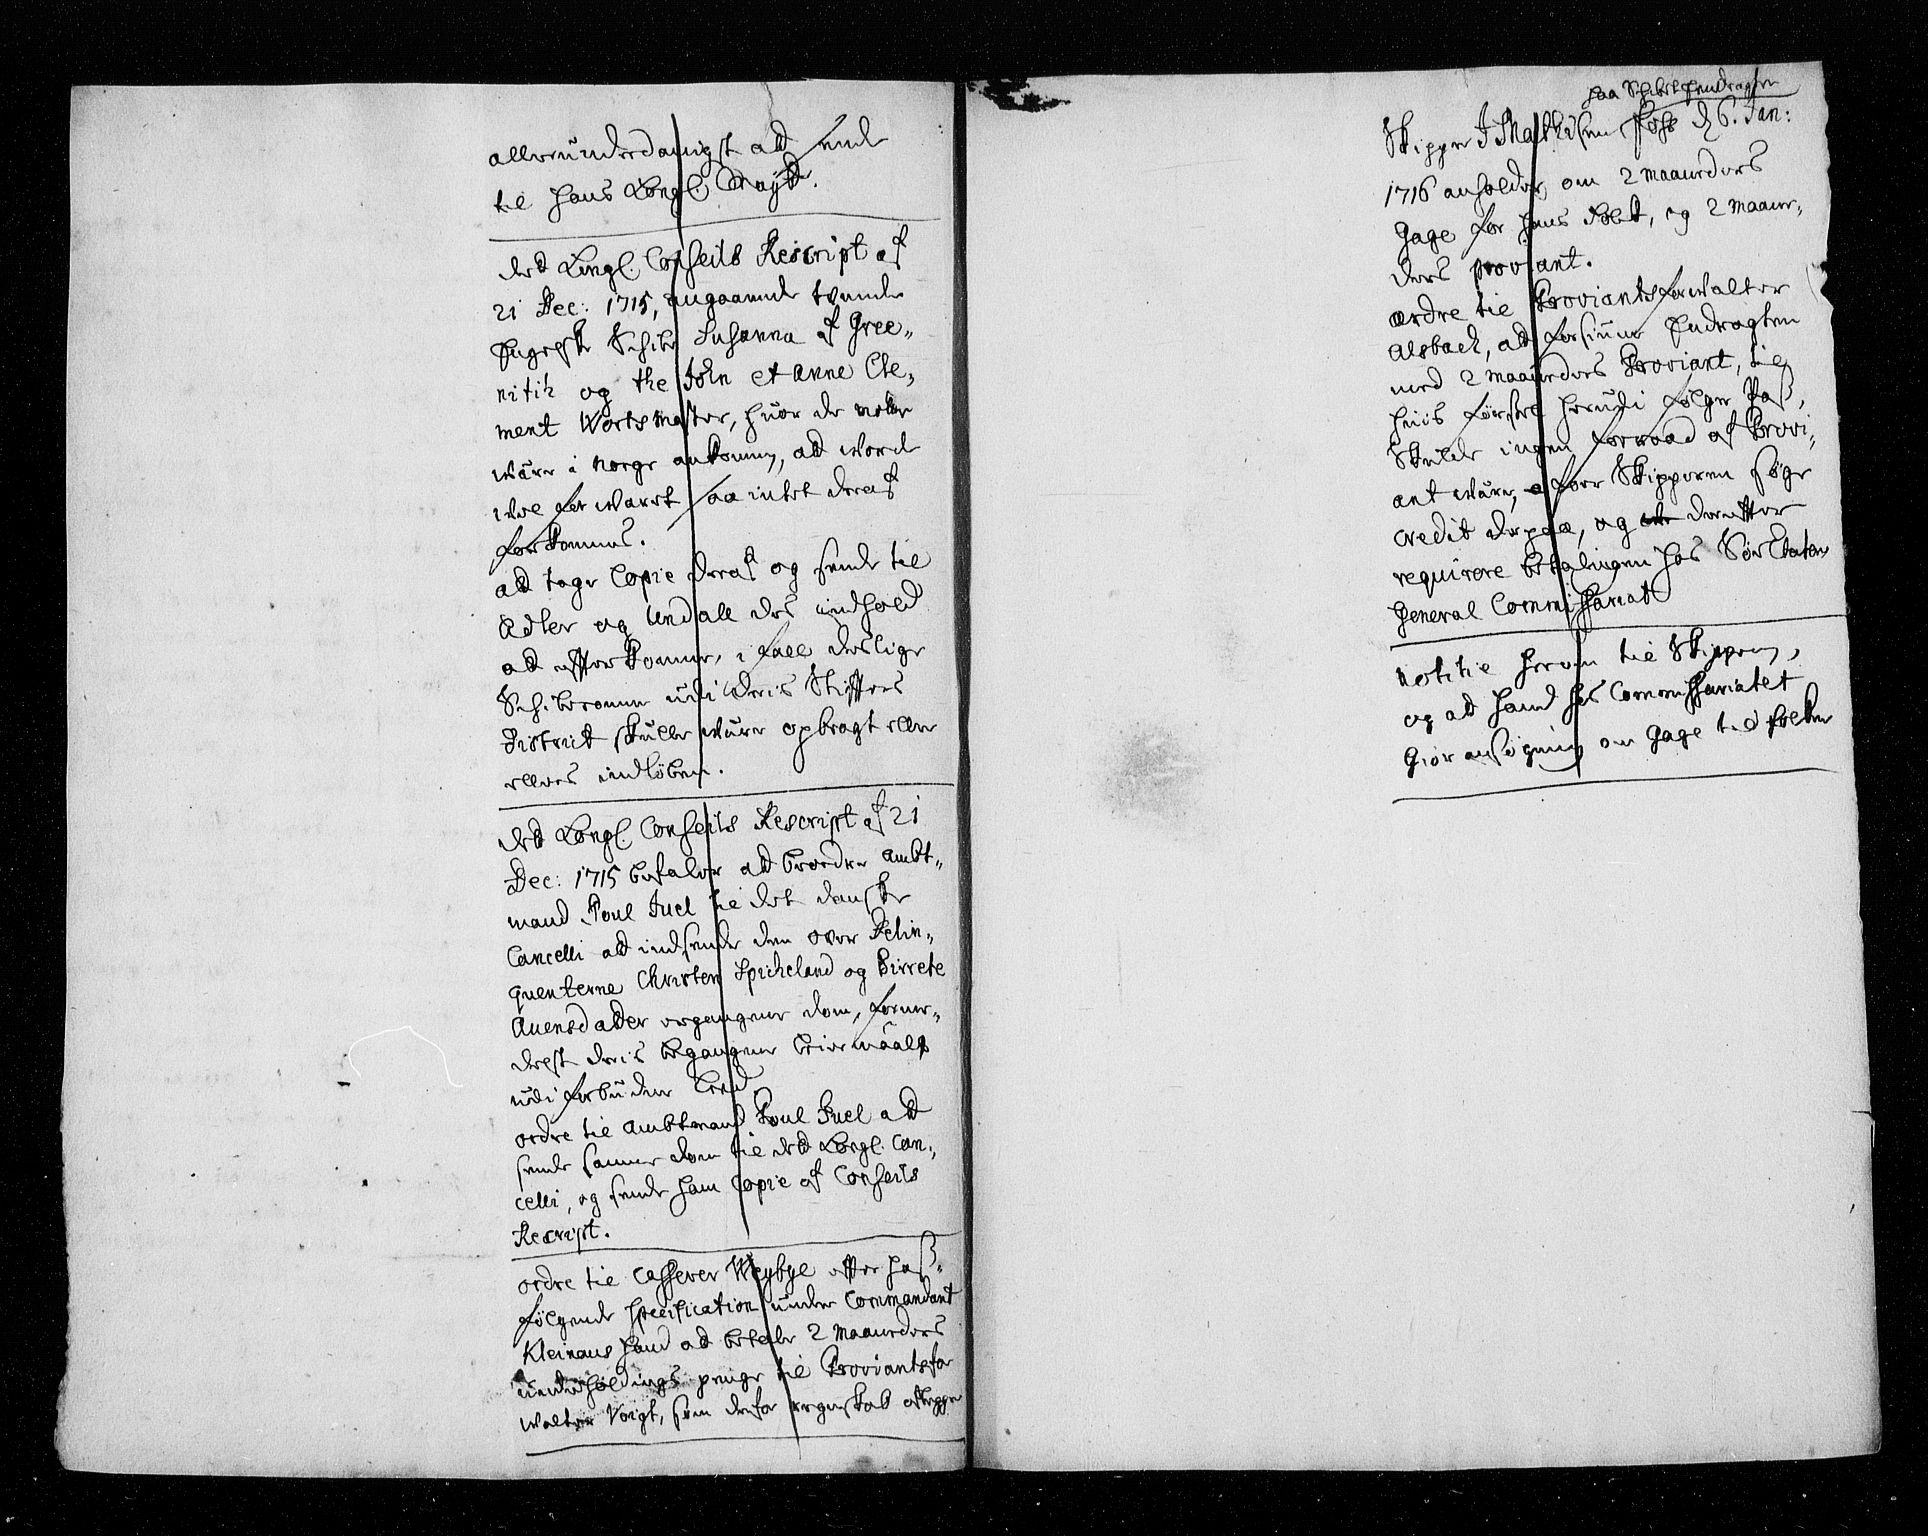 allerunderdanigst ald sende
til hans Kongl. Mayt.
Det Kongl. Conseils Rescript af
21 Dec: 1715, angaaende tvende
Engelske Schibe Susanna af Gree-
nitih og the John et Anne Cle-
ment Worts master, huor de
wäre i Norge ankomen, ad worde
wel forwaret saa intet deraf
forkommes.
ad tage Copie deraf og sende til
Adler og Undall des indhold
ad efterkomme, i fall deslige
Schiberomme udi deris Stiffters
District skulle wäre opbragt eller
elles indlöben.
Det Kongl. Conseils Rescript af 21
Dec: 1715 befaler ad beordre Ambt-
mand Poul Juel til det danske
Cancelli ad indsende den over Delin-
quenterne Christen Spicheland og Birrete
Auensdatter ergangene dom, forme-
delst deris begangene leiermaals
udi forbuden leed.
ordre til Ambtmand Poul Juel ad
sende samme dom til det Kongl. Can-
celli, og sende ham Copie af Conseils
Rescript.
ordre til Casserer Weybye efter haß-
følgende Specification under Commandant
Kleinaus haand ad betale 2 maaneders
underholdings penge til Proviantsfor
walter Voigt, som derfor regenskab aflegger
paa Schibet Endragten
Skipper J Mathisen Føhs d 6. Jan:
1716 anholder om 2 maaneders
Gage for hans Folck, og 2 maane-
ders proviant.
ordre til Proviantsforwalter
Alsbach, ad forsiune Endragten
med 2 maaneders Proviant, til
huis første herudi følger Paß,
Skulde ingen forraad af Provi-
ant wäre, faar Skipperen søge
credit derpaa, og derefter
requirere betalingen hos Söe Etatens
General Commissariat
notitie herom til Skipperen,
og ad hand hos Commissariatet
Giør ansögning om Gage til folcken